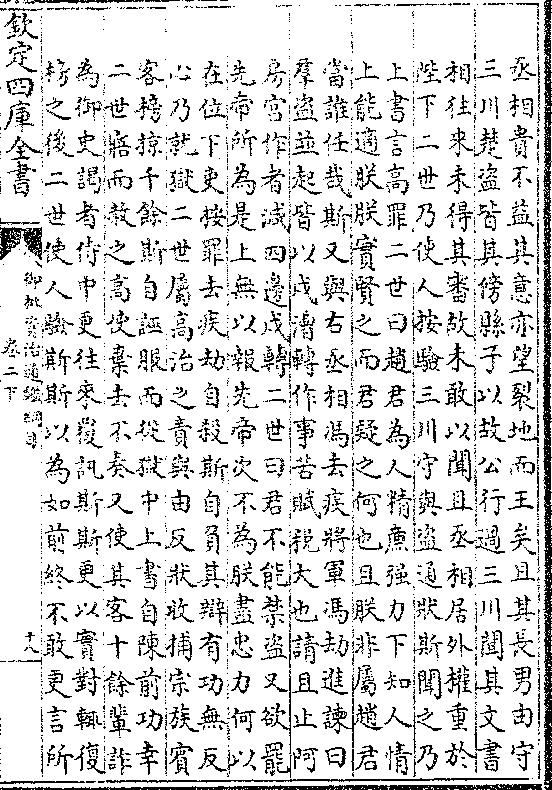 丞相貴不益其意亦望裂地而王矣且其長男由守
三川楚盜皆其傍縣子以故公行過三川聞其文書
相往來未得其審故未敢以聞且丞相居外權重於
陛下二世乃使人按驗三川守與盜通狀斯聞之乃
上書言高罪二世曰趙君為人精廉强力下知人情
上能適朕朕實賢之而君疑之何也且朕非屬趙君
當誰任哉斯又與右丞相馮去疾將軍馮劫進諫曰
羣盜並起皆以戍漕轉作事苦賦稅大也請且止阿
房宮作者減四邊戍轉二世曰君不能禁盜又欲罷
先帝所為是上無以報先帝次不為朕盡忠力何以
在位下吏按罪去疾劫自殺斯自負其辯有功無反
心乃就獄二世屬高治之責與由反狀收捕宗族賓
客榜掠千餘斯自誣服而從獄中上書自陳前功幸
二世寤而赦之高使棄去不奏又使其客十餘輩詐
為御史謁者侍中更往來覆訊斯斯更以實對輒復
榜之後二世使人驗斯斯以為如前終不敢更言所
欽定四庫全書
御批資治通鑑綱目
卷二下
十八